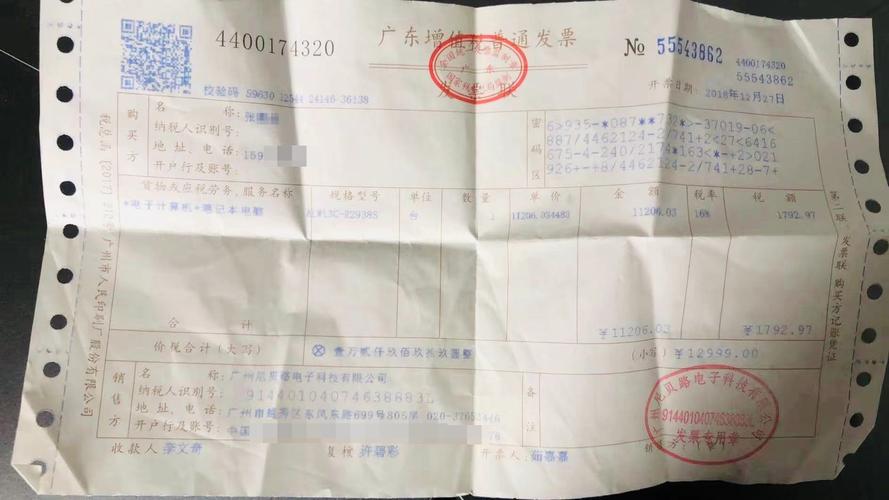 4400174320
广东增值税普通发票
发票联
№ 55543862
4400174320
55543862
校验码 59630 12544 24146 36138
开票日期: 2018年12月27日
购买方
名 称:
纳税人识别号:
地 址、电 话: 159
开户行及账号:
密码区
6>935-*087**732*>-37019-06<
887/4462124-2/741+2<27<6416
675-4-240/2174*163<*-+2>021
926+-+8/4462124-2/741+28-7+
货物或应税劳务、服务名称 规格型号 单位 数量 单价 金额 税率 税额
*电子计算机*笔记本电脑 ALW13C-R2938S 台 1 11206.034483 11206.03 16% 1792.97
合 计 ¥11206.03 ¥1792.97
价税合计(大写) ⊗壹万贰仟玖佰玖拾玖圆整 (小写) ¥12999.00
销售方
名 称: 电子科技有限公司
纳税人识别号:
地 址、电 话: 广州市越秀区东风东路699号805房 020-
开户行及账号: 中国 78
备注
收款人: 李文奇 复核: 许碧彩 开票人: 茹嘉嘉 销售方:(章)
第二联:发票联 购买方记账凭证
广州市人民印刷厂股份有限公司
广州尼贝路电子科技有限公司
发票专用章